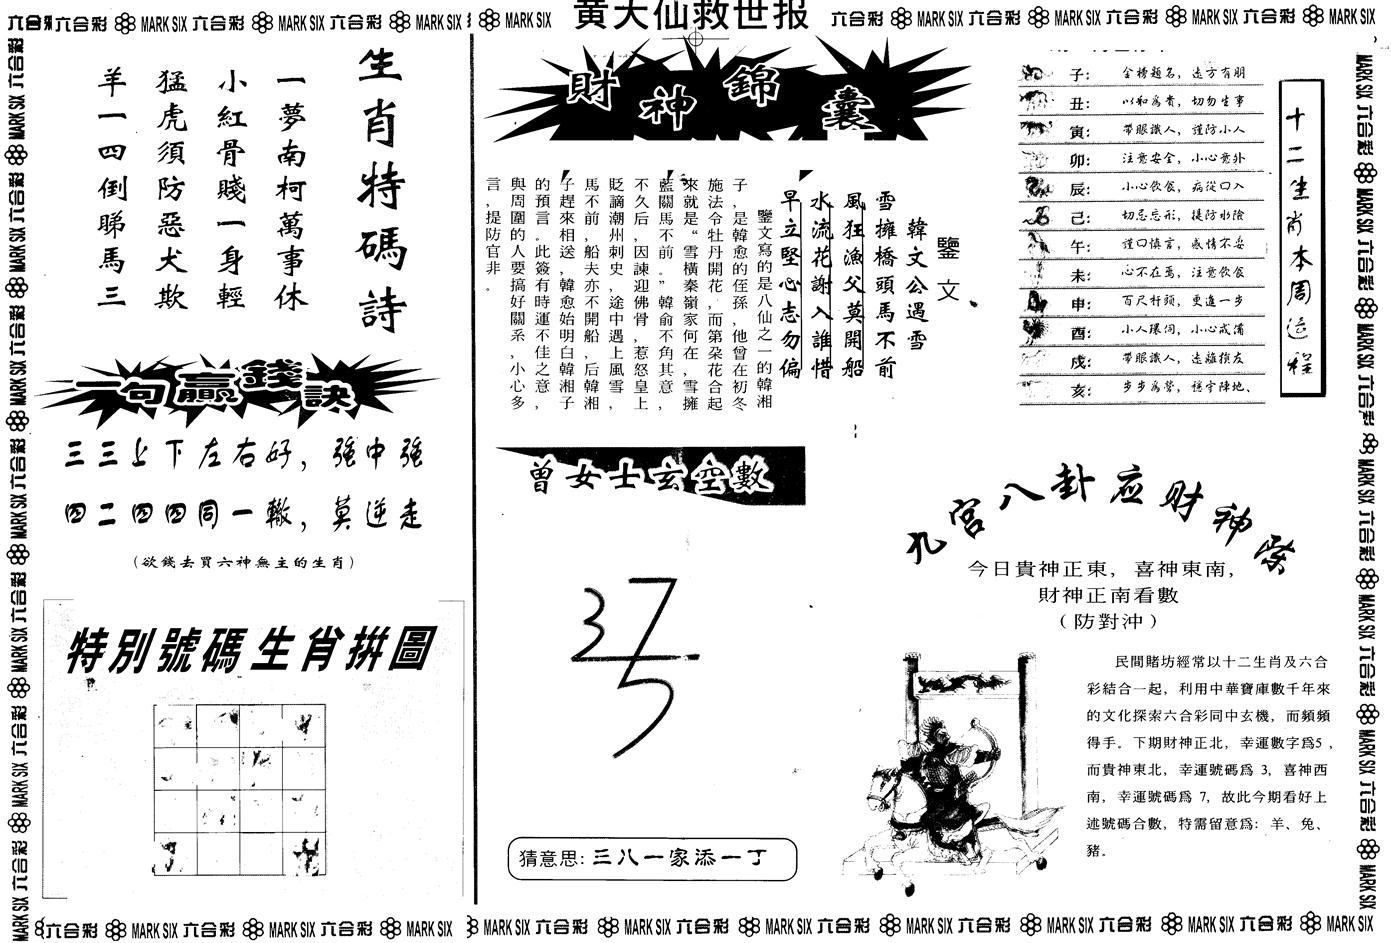 黄大仙救世报
六合彩 MARK SIX
生肖特碼詩
一夢南柯萬事休
小紅骨賤一身輕
猛虎須防惡犬欺
羊一四倒睇馬三
一句贏錢訣
三三上下左右好，強中強
四二四四同一轍，莫逆走
(欲錢去買六神無主的生肖)
特別號碼生肖拼圖
財神錦囊
鑒文
韓文公遇雪
雪擁橋頭馬不前
風狂漁父莫開船
水流花謝入誰惜
早立堅心志勿偏
鑒文寫的是八仙之一的韓湘
子，是韓愈的侄孫，他曾在初冬
施法令牡丹開花，而第朵花合起
來就是“雪橫秦嶺家何在，雪擁
藍關馬不前。”韓俞不角其意，
不久后，因諫迎佛骨，惹怒皇上
貶謫潮州刺史，途中遇上風雪，
馬不前，船夫亦不開船，后韓湘
子趕來相送，韓愈始明白韓湘子
的預言。此簽有時運不佳之意，
與周圍的人要搞好關系，小心多
言，提防官非。
曾女士玄空數
37
5
猜意思:三八一家添一丁
十二生肖本周运程
子: 金榜題名，遠方有朋
丑: 以和為貴，切勿生事
寅: 帶眼識人，謹防小人
卯: 注意安全，小心意外
辰: 小心飲食，病從口入
己: 切忌忘形，提防水險
午: 謹口慎言，感情不妥
未: 心不在焉，注意飲食
申: 百尺杆頭，更進一步
酉: 小人環伺，小心戒備
戌: 帶眼識人，遠離損友
亥: 步步為營，穩守陣地、
九宮八卦应财神
今日貴神正東，喜神東南，
財神正南看數
(防對沖)
民間賭坊經常以十二生肖及六合
彩結合一起，利用中華寶庫數千年來
的文化探索六合彩同中玄機，而頻頻
得手。下期財神正北，幸運數字爲5，
而貴神東北，幸運號碼爲 3，喜神西
南，幸運號碼爲 7，故此今期看好上
述號碼合數，特需留意爲: 羊、兔、
豬。
六合彩 MARK SIX